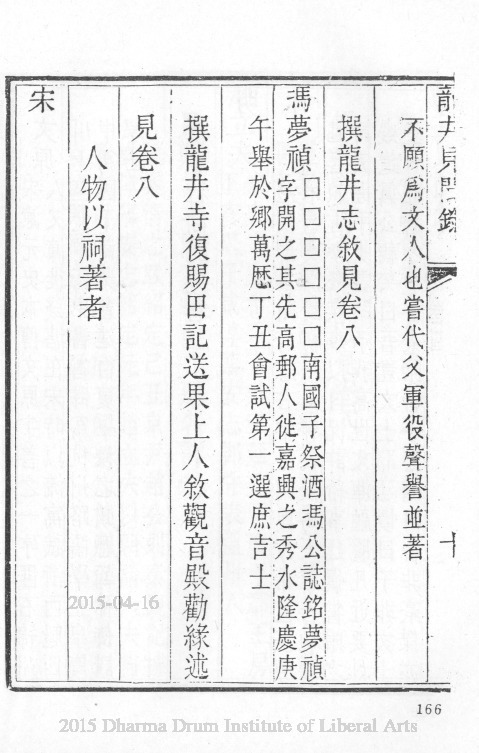 龍井見聞錄
十
不願爲文人也嘗代父軍役聲譽並著
撰龍井志敘見卷八
馮夢禎
□□□□□□南國子祭酒馮公誌銘夢禎
字開之其先高郵人徙嘉興之秀水隆慶庚
午舉於鄉萬歴丁丑會試第一選庶吉士
撰龍井寺復賜田記送果上人敘觀音殿勸緣述
見卷八
人物以祠著者
宋
2015-04-16
166
2015 Dharma Drum Institute of Liberal Arts